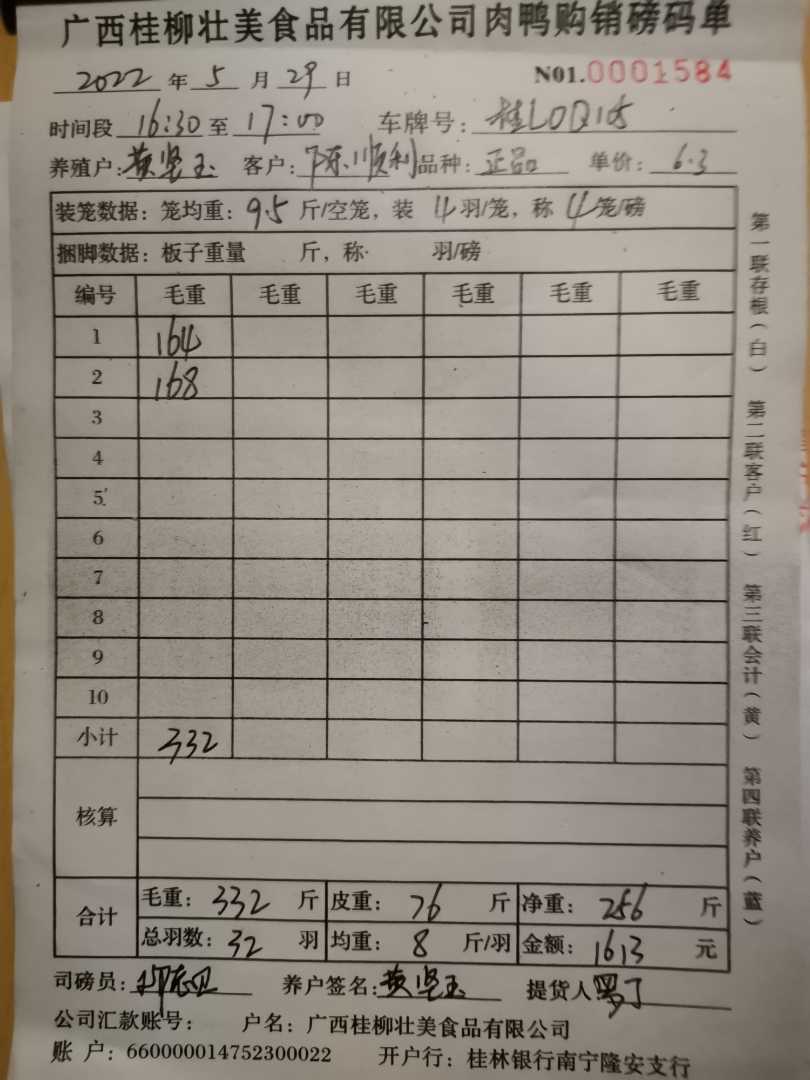 广西桂柳壮美食品有限公司肉鸭购销磅码单
2022年5月29日 N01.0001584
时间段 16:30至17:00 车牌号:桂L0Q105
养殖户:黄坚玉 客户:陈顺利 品种:正品 单价:6.3
装笼数据:笼均重:9.5斤/空笼,装4羽/笼,称4笼/磅
捆脚数据:板子重量 斤,称 羽/磅
编号 毛重 毛重 毛重 毛重 毛重 毛重
1 164
2 168
3
4
5
6
7
8
9
10
小计 332
核算
合计 毛重:332斤 皮重:76斤 净重:256斤
总羽数:32羽 均重:8斤/羽 金额:1613元
司磅员: 养户签名:黄坚玉 提货人
公司汇款账号: 户名:广西桂柳壮美食品有限公司
账 户:660000014752300022 开户行:桂林银行南宁隆安支行
第一联存根(白) 第二联客户(红) 第三联会计(黄) 第四联养户(蓝)